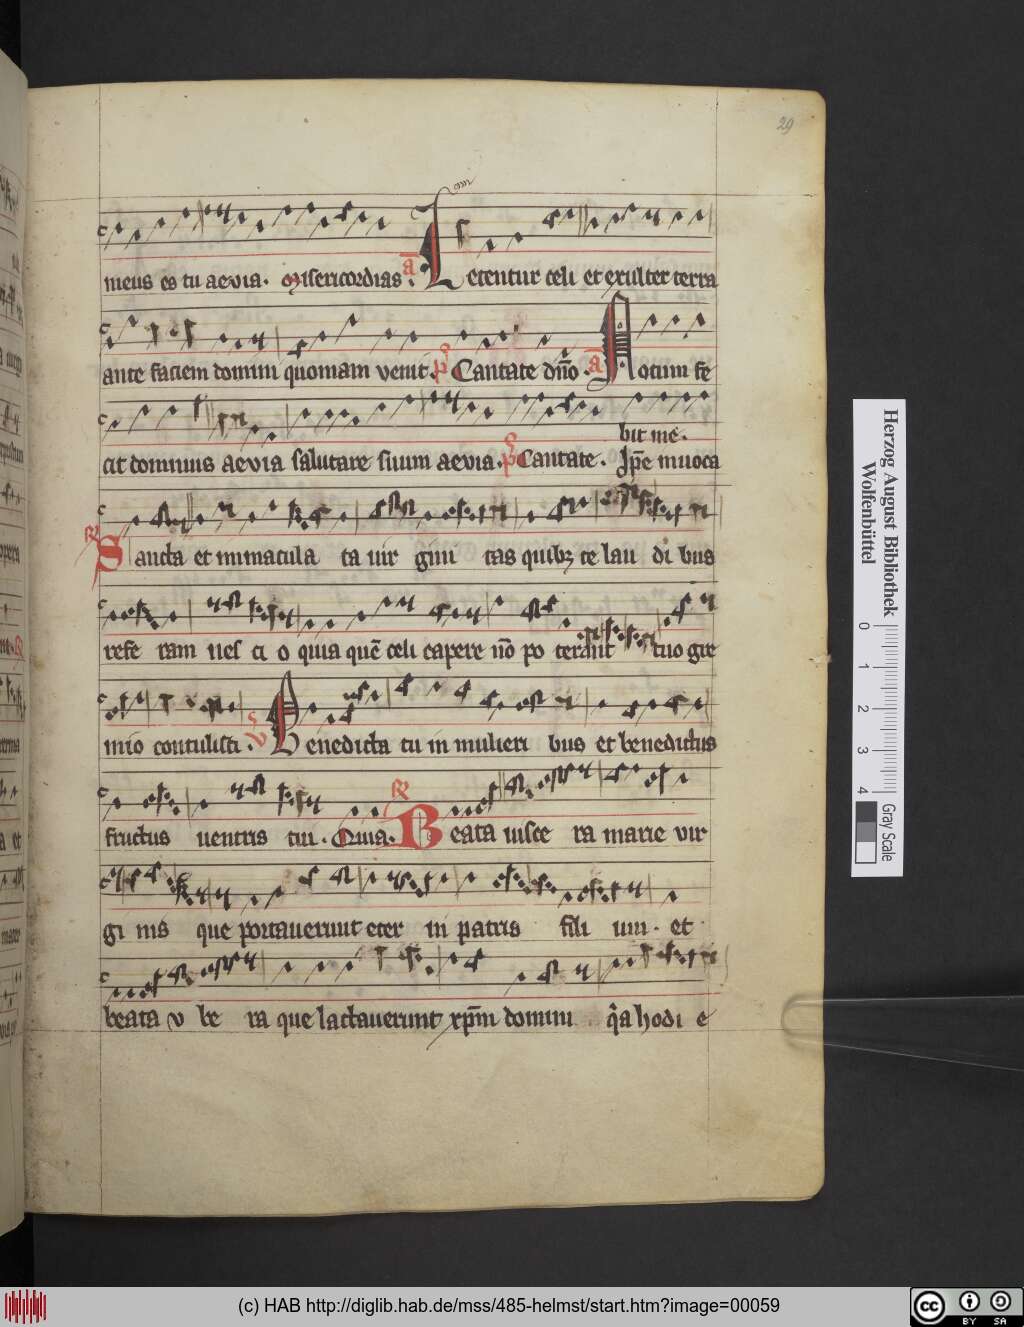 29
meus es tu aevia. Misericordias. a Letentur celi et exultet terra
ante faciem domini quoniam venit. ps Cantate dn̄o. a Notum fe
bit me.
cit dominus aevia salutare suum aevia. ps Cantate. Ip̄e inuoca
R Sancta et inmacula ta uir gini tas quibꝫ te lau di bus
refe ram nes ci o quia quē celi capere nō po terant tuo gre
mio contulisti. V Benedicta tu in mulieri bus et benedictus
fructus uentris tui. Quia. R Beata uisce ra marie vir
gi nis que portauerunt eter ni patris fili um. et
beata v be ra que lactauerunt xp̄m dominu q̄a hodi e
Herzog August Bibliothek
Wolfenbüttel
0 1 2 3 4
Gray Scale
(c) HAB http://diglib.hab.de/mss/485-helmst/start.htm?image=00059
cc BY SA